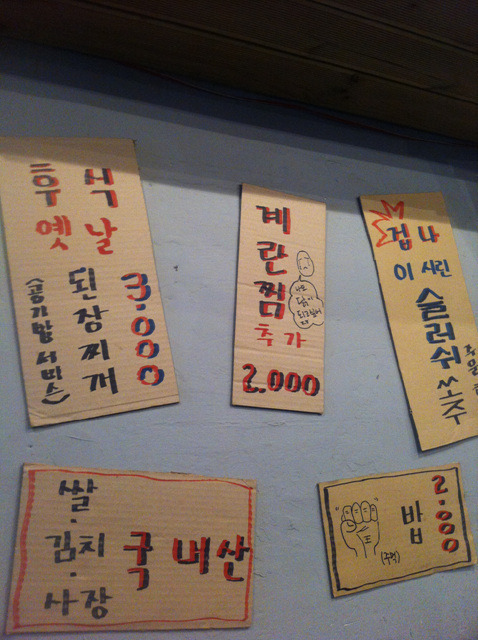 후식
옛날
된장찌개
3.000
(공기밥 서비스)
계란찜
추가
2.000
나도
닭이
되고싶어
겁나
이시린
슬러쉬
쏘주
쌀·김치·사장
국내산
2.000
밥
(주먹)